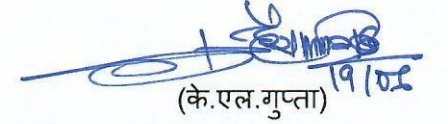 19/06
(के.एल.गुप्ता)